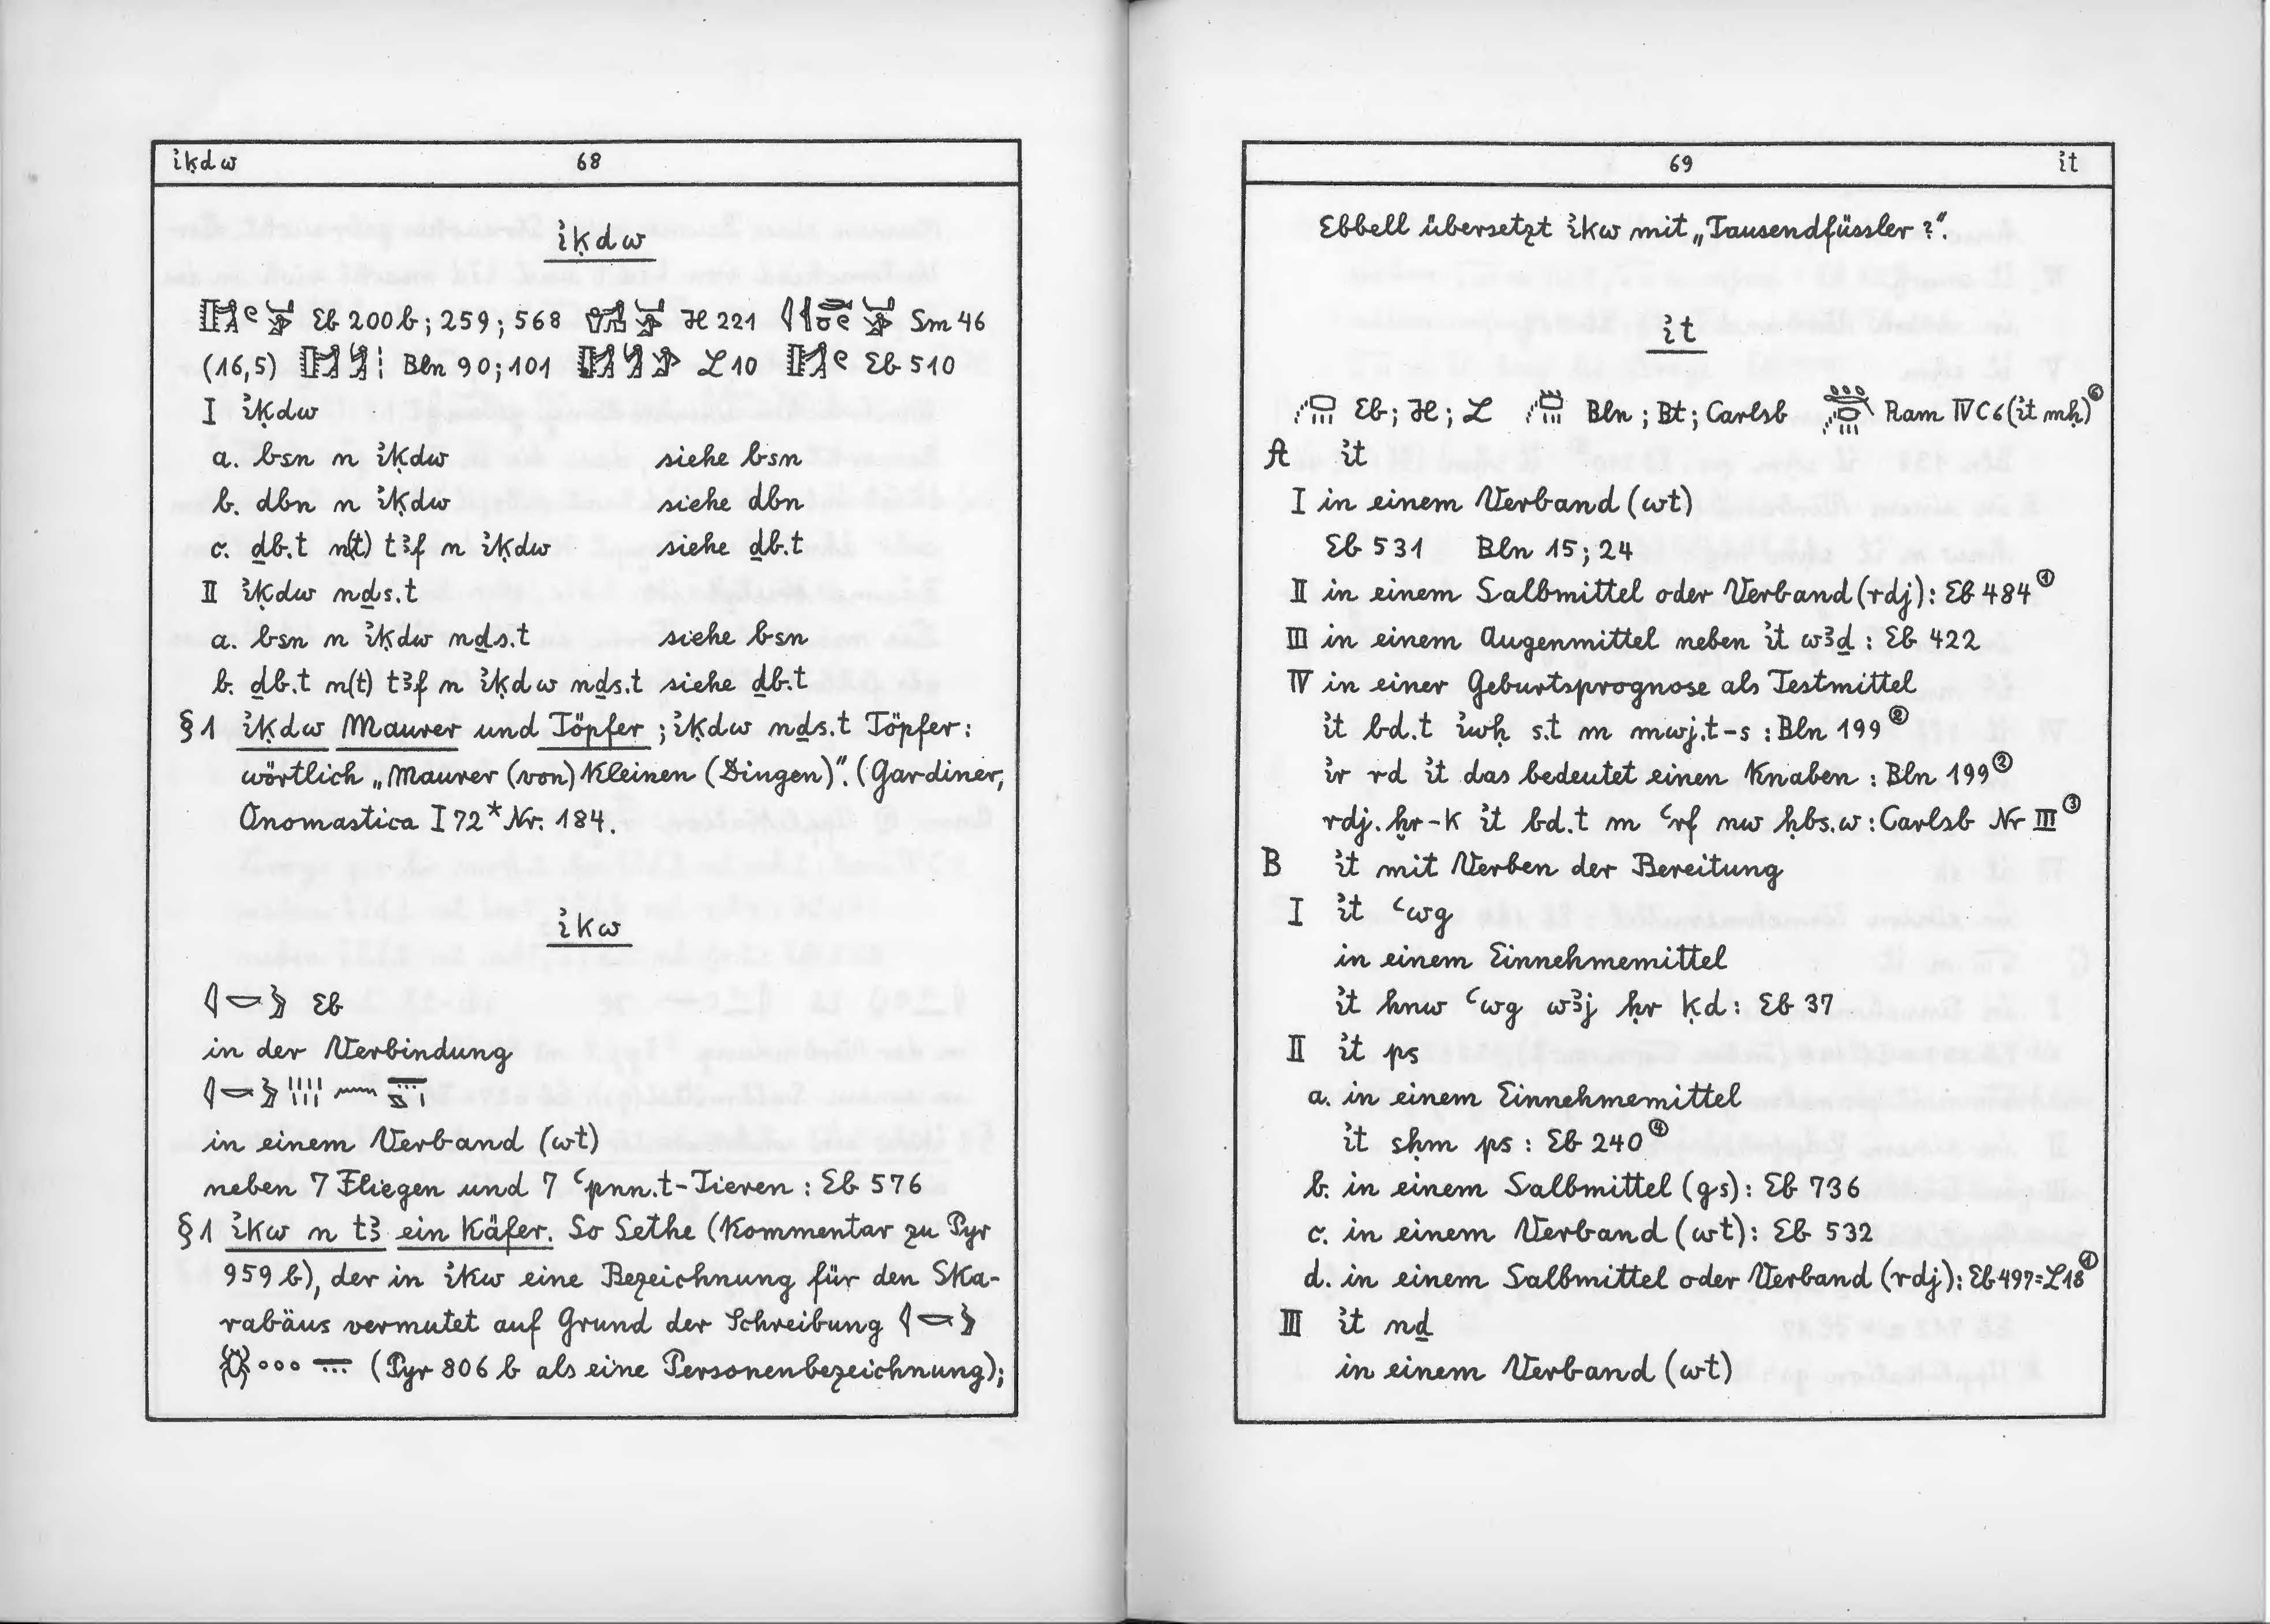 ỉḳdw 68
ỉḳdw
Eb 200b; 259; 568 H 221 Sm 46
(16,5) Bln 90; 101 L 10 Eb 510
I ỉḳdw
a. bsn n ỉḳdw siehe bsn
b. dbn n ỉḳdw siehe dbn
c. ḏb.t n(t) tꜣf n ỉḳdw siehe ḏb.t
II ỉḳdw nḏs.t
a. bsn n ỉḳdw nḏs.t siehe bsn
b. ḏb.t n(t) tꜣf n ỉḳdw nḏs.t siehe ḏb.t
§ 1 ỉḳdw Maurer und Töpfer; ỉḳdw nḏs.t Töpfer:
wörtlich „Maurer (von) Kleinen (Dingen)". (Gardiner,
Onomastica I 72* Nr. 184.
ỉkw
Eb
in der Verbindung
in einem Verband (wt)
neben 7 Fliegen und 7 ꜥpnn.t-Tieren: Eb 576
§ 1 ỉkw n tꜣ ein Käfer. So Sethe (Kommentar zu Pyr
959 b), der in ỉkw eine Bezeichnung für den Ska-
rabäus vermutet auf Grund der Schreibung
(Pyr 806 b als eine Personenbezeichnung);
69 ỉt
Ebbell übersetzt ỉkw mit „Tausendfüssler?".
ỉt
Eb; H; L Bln; Bt; Carlsb Ram IV C 6 (ỉt mḥ)⑥
A ỉt
I in einem Verband (wt)
Eb 531 Bln 15; 24
II in einem Salbmittel oder Verband (rdj): Eb 484①
III in einem Augenmittel neben ỉt wꜣḏ: Eb 422
IV in einer Geburtsprognose als Testmittel
ỉt bd.t ỉwḥ s.t m mwj.t-s: Bln 199②
ỉr rd ỉt das bedeutet einen Knaben: Bln 199②
rdj.ḫr-k ỉt bd.t m ꜥrf nw ḥbs.w: Carlsb Nr III③
B ỉt mit Verben der Bereitung
I ỉt ꜥwg
in einem Einnehmemittel
ỉt hnw ꜥwg wꜣj ḥr ḳd: Eb 37
II ỉt ps
a. in einem Einnehmemittel
ỉt sḫm ps: Eb 240④
b. in einem Salbmittel (gs): Eb 736
c. in einem Verband (wt): Eb 532
d. in einem Salbmittel oder Verband (rdj): Eb 497=L18①
III ỉt nḏ
in einem Verband (wt)